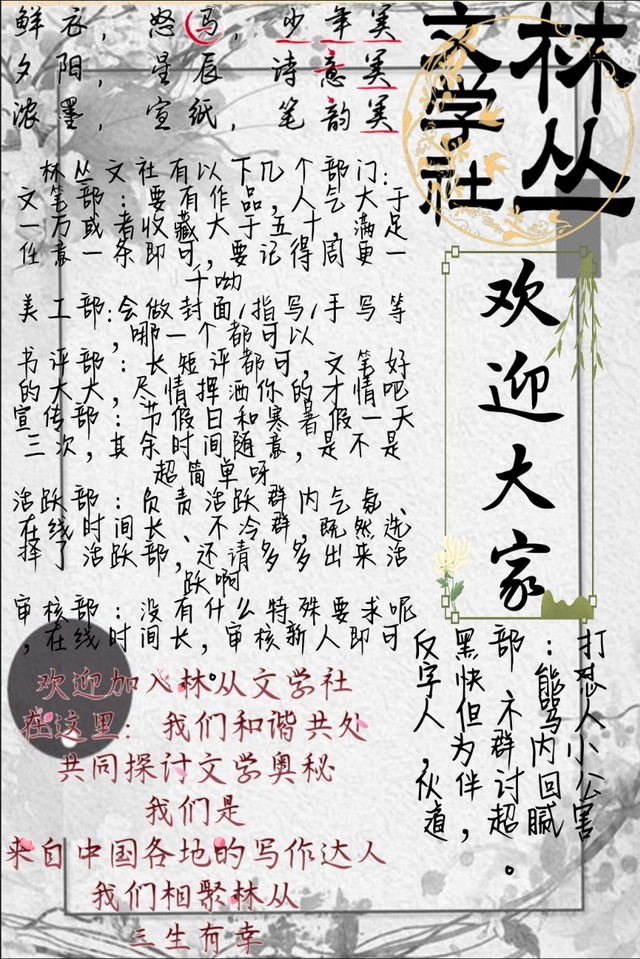 鲜衣，怒马，少年美
夕阳，星辰，诗意美
浓墨，宣纸，笔韵美
林丛
文学社
欢迎大家
林丛文社有以下几个部门:
文笔部：要有作品，人气大于
一万或者收藏大于五十，满足
任意一条即可，要记得周更一
千呦
美工部:会做封面/指写/手写等
，哪一个都可以
书评部：长短评都可，文笔好
的大大，尽情挥洒你的才情吧
宣传部：节假日和寒暑假一天
三次，其余时间随意，是不是
超简单呀
活跃部：负责活跃群内气氛、
在线时间长、不冷群，既然选
择了活跃部，还请多多出来活
跃啊
审核部：没有什么特殊要求呢
，在线时间长，审核新人即可
。
反黑部：打
字快，能怼
人但不骂人
，为群内小
伙伴讨回公
道，超腻害
。
欢迎加入林从文学社
在这里：我们和谐共处
共同探讨文学奥秘
我们是
来自中国各地的写作达人
我们相聚林从
三生有幸